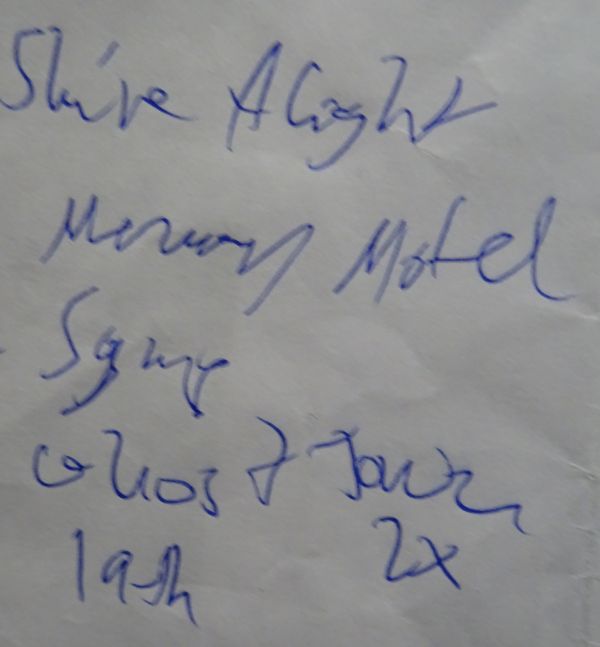 Shine A light
Memory Motel
Symp
Ghost Town
19th 2x